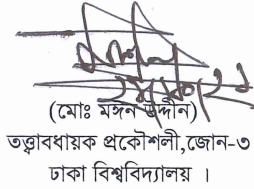 (মোঃ মঈন উদ্দীন)
তত্ত্বাবধায়ক প্রকৌশলী,জোন-৩
ঢাকা বিশ্ববিদ্যালয় ।